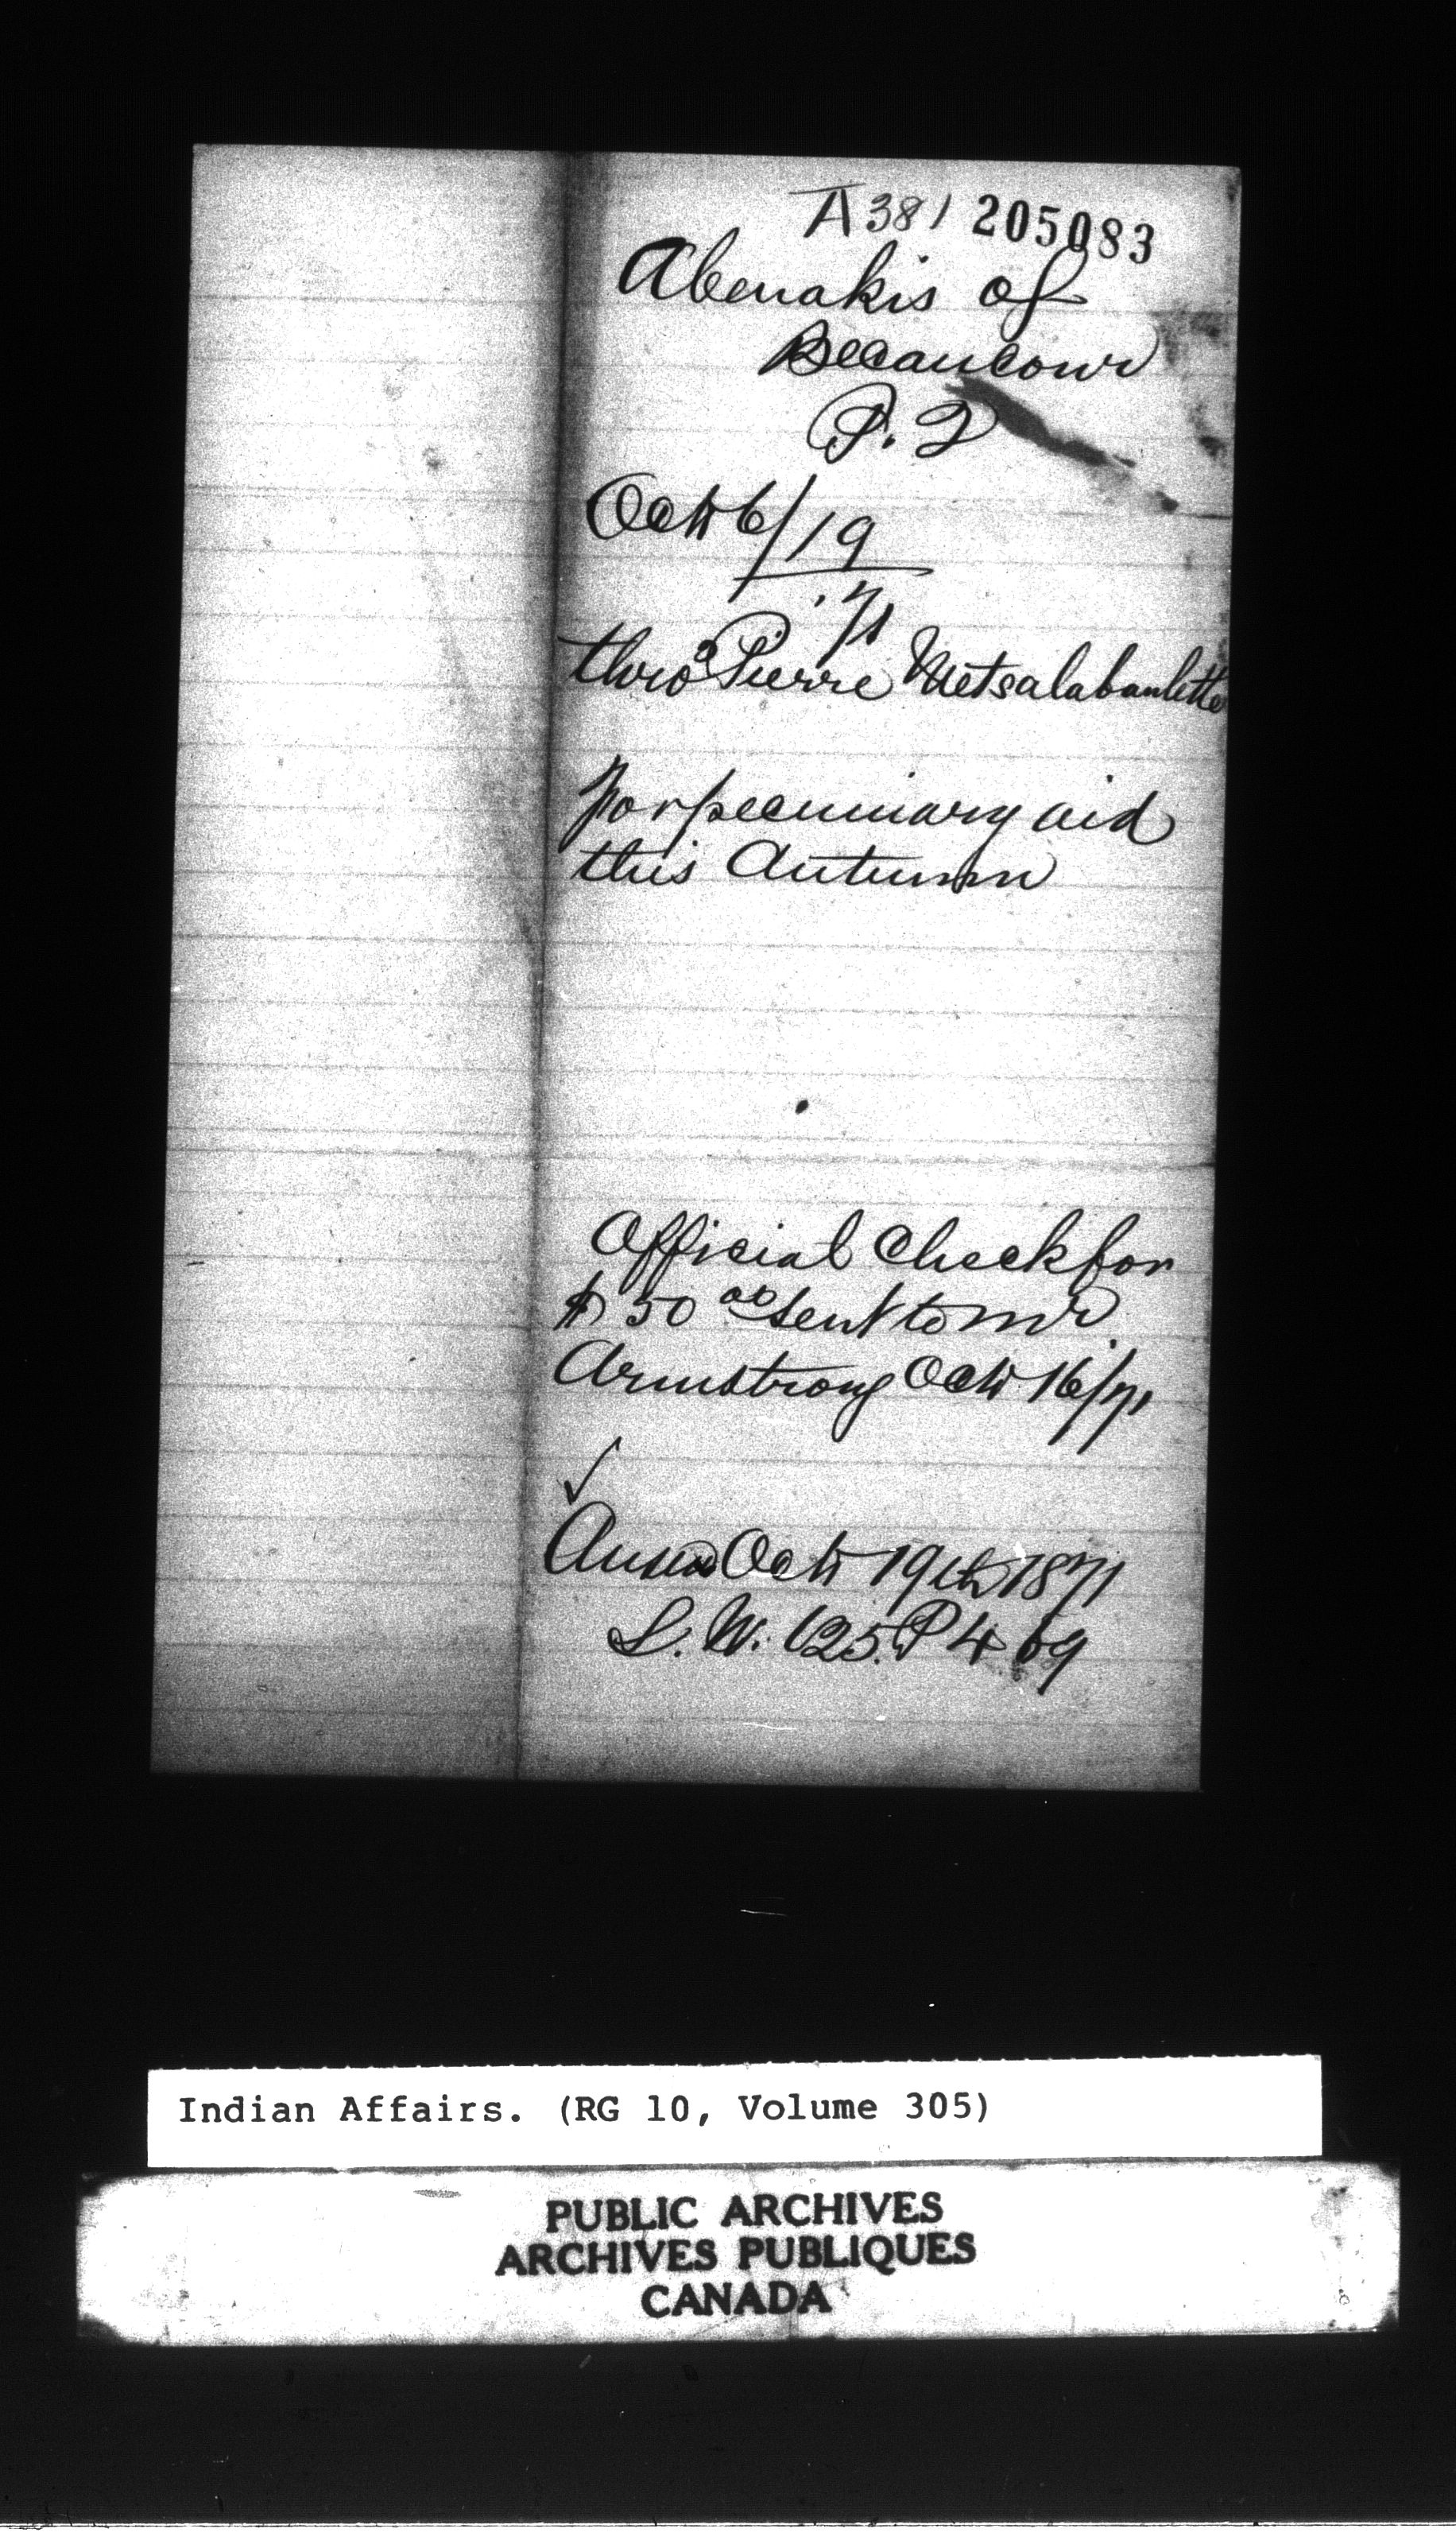 A 381 205083
Abenakis of
Becancour
P. Q
Octr 6/19
'71
thro' Pierre Metsalabanlette
for pecuniary aid
this Autumn
Official Check for
$50 00 sent to Mr.
Armstrong Octr 16/71
✓
Ansd Octr 19th 1871
L. W. 125. P 469
Indian Affairs. (RG 10, Volume 305)
PUBLIC ARCHIVES
ARCHIVES PUBLIQUES
CANADA